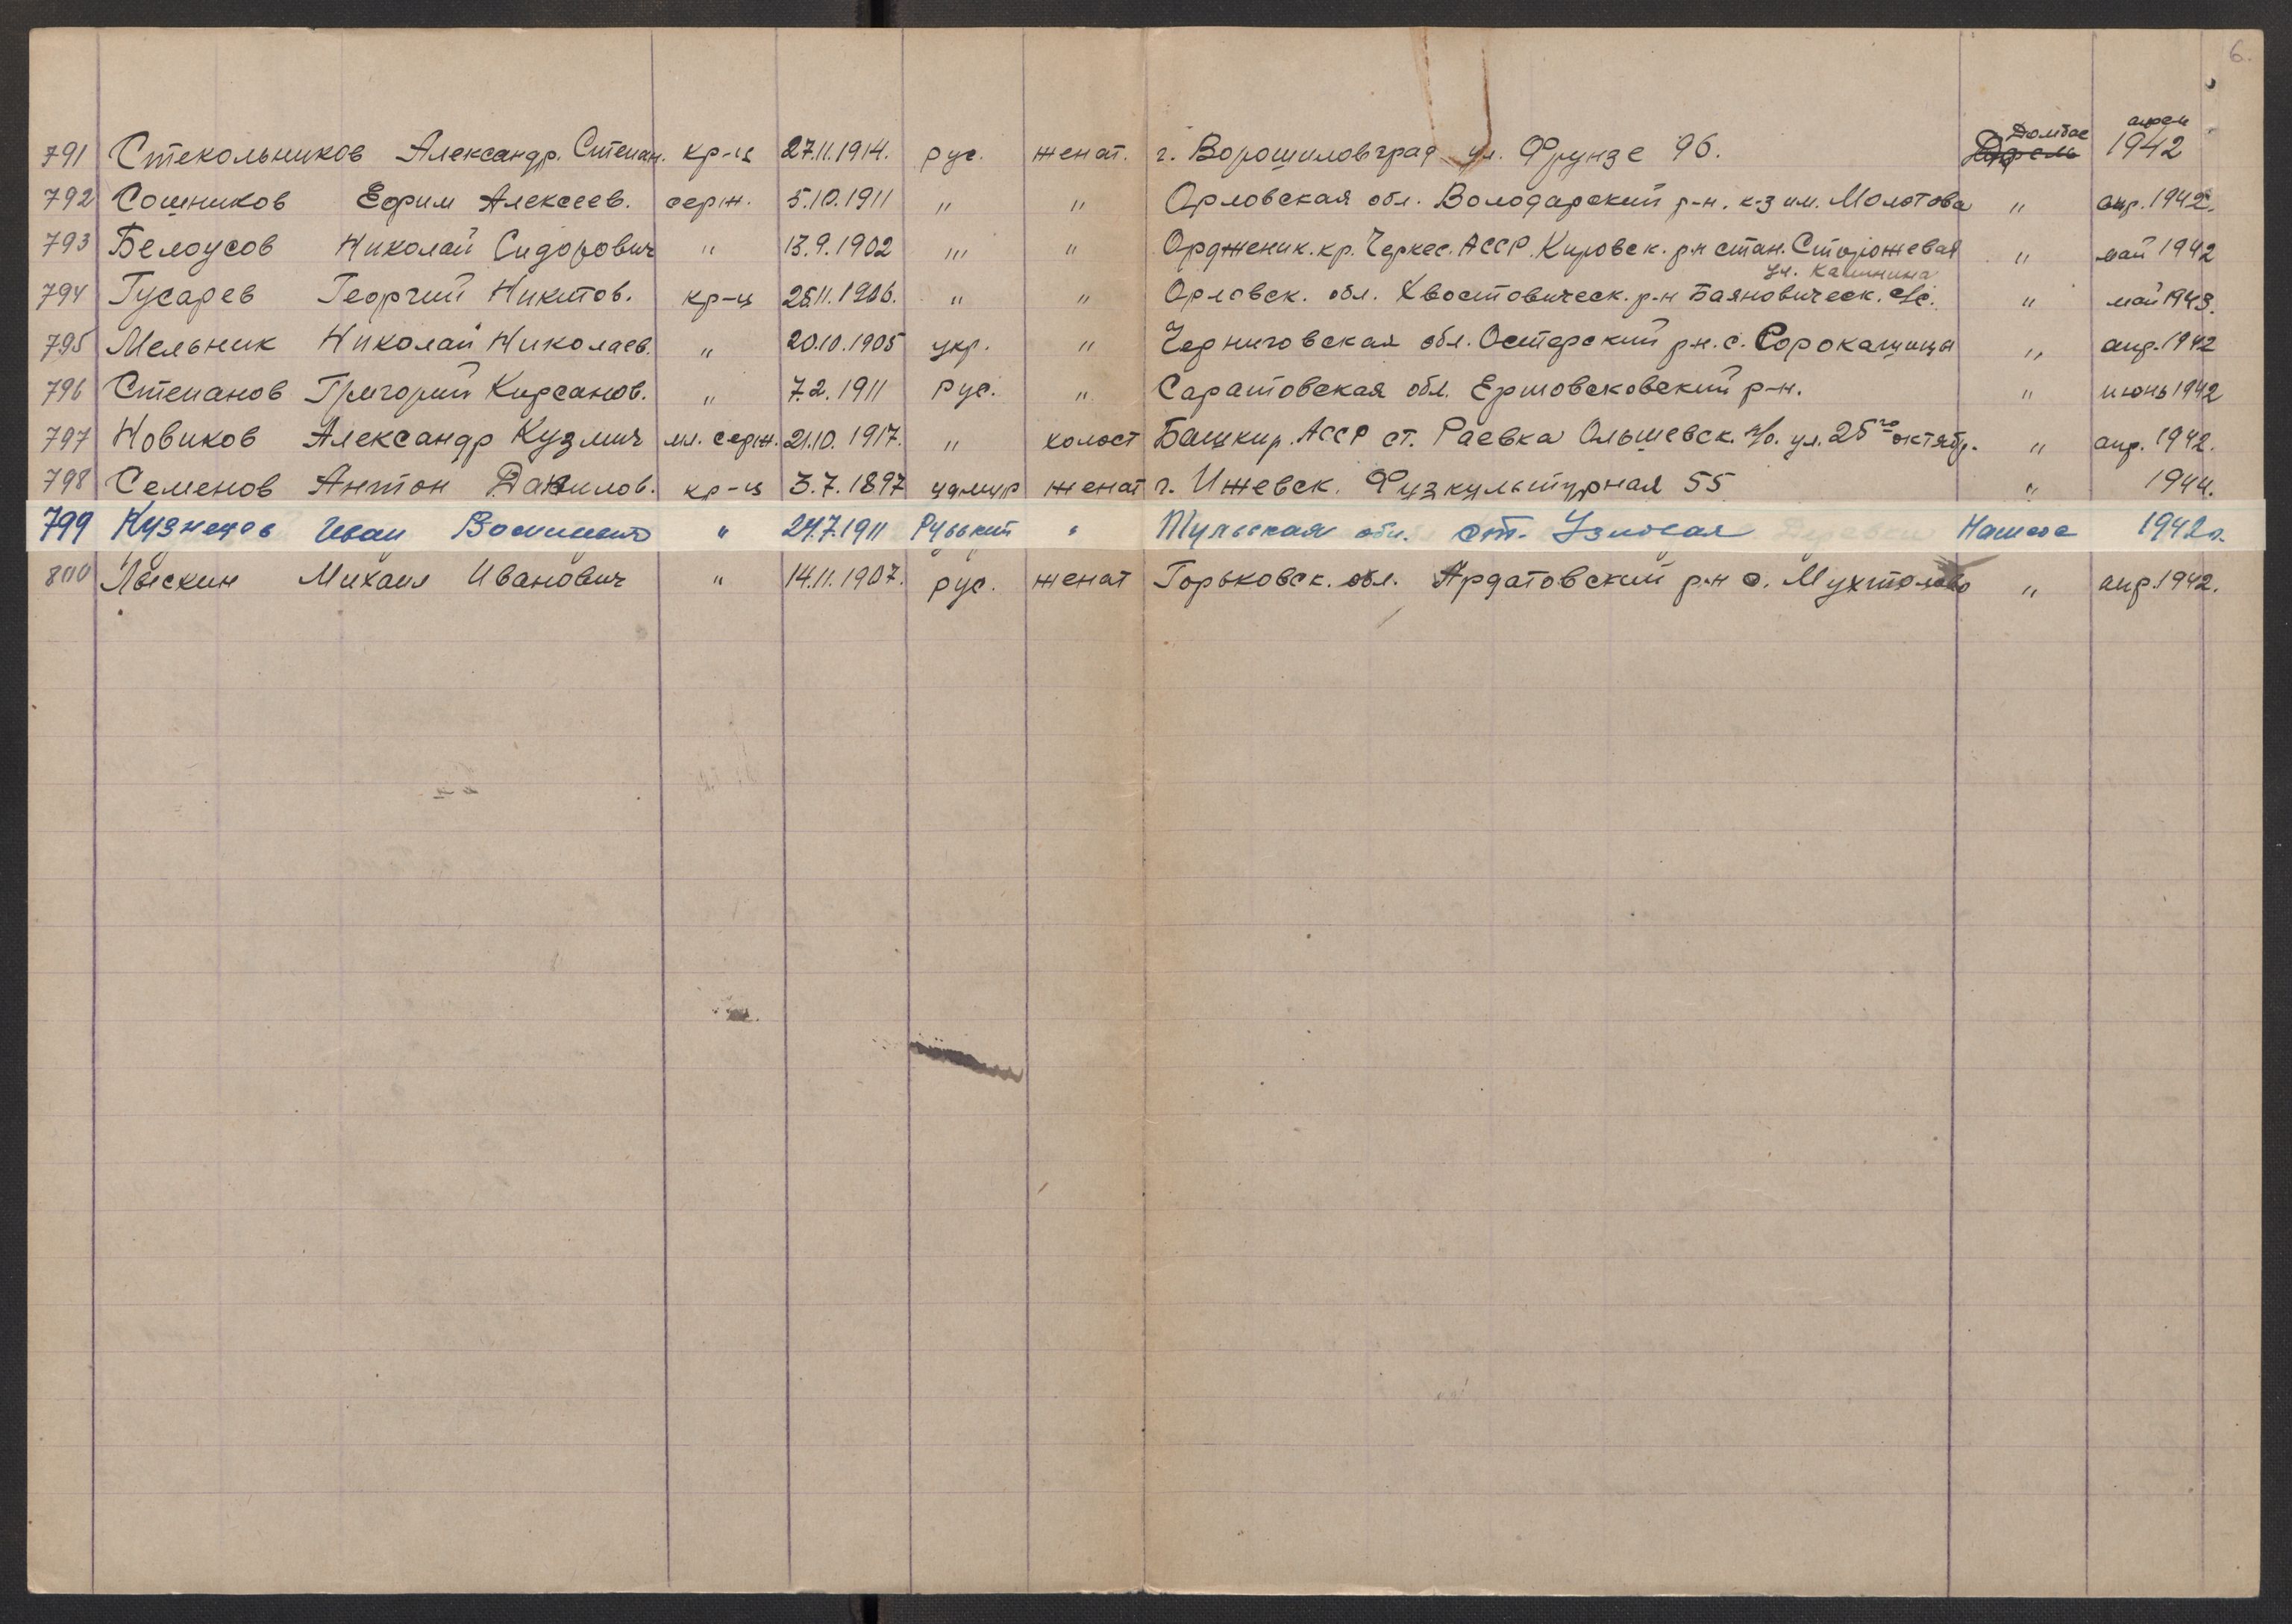 6.
791 Стекольников Александр. Степан. кр-ц 27.11.1914. рус. женат. г. Ворошиловград ул. Фрунзе 96. Домбас апрель 1942
792 Сошников Ефим Алексеев. серж. 5.10.1911 " " Орловская обл. Володарский р-н. к-з им. Молотова " апр. 1942.
793 Белоусов Николай Сидорович " 13.9.1902 " " Орджоник. кр. Черкес. АССР. Кировск. р-н стан. Сторожевая " май 1942
ул. Калинина
794 Гусарев Георгий Никитов. кр-ц 25.11.1906. " " Орловск. обл. Хвостовическ. р-н Баяновическ. с/с. " май 1943.
795 Мельник Николай Николаев. " 20.10.1905 укр. " Черниговская обл. Остерский р-н. с. Сорокашицы " апр. 1942
796 Степанов Григорий Кирсанов. " 7.2.1911 рус. " Саратовская обл. Ершовсковский р-н. " июнь 1942
797 Новиков Александр Кузмич мл. серж. 21.10.1917. " холост Башкир. АССР ст. Раевка Альшевск. ул. 25го октябр. " апр. 1942.
798 Семенов Антон Данилов. кр-ц 3.7.1897 удмур женат г. Ижевск. Физкультурная 55 " 1944.
799 Кузнецов Иван " 24.7.1911 Руьский " Тульская обл. ст. Узловая 1942г.
800 Лыскин Михаил Иванович " 14.11.1907. рус. женат Горьковск. обл. Ардатовский р-н с. Мухтолово " апр. 1942.